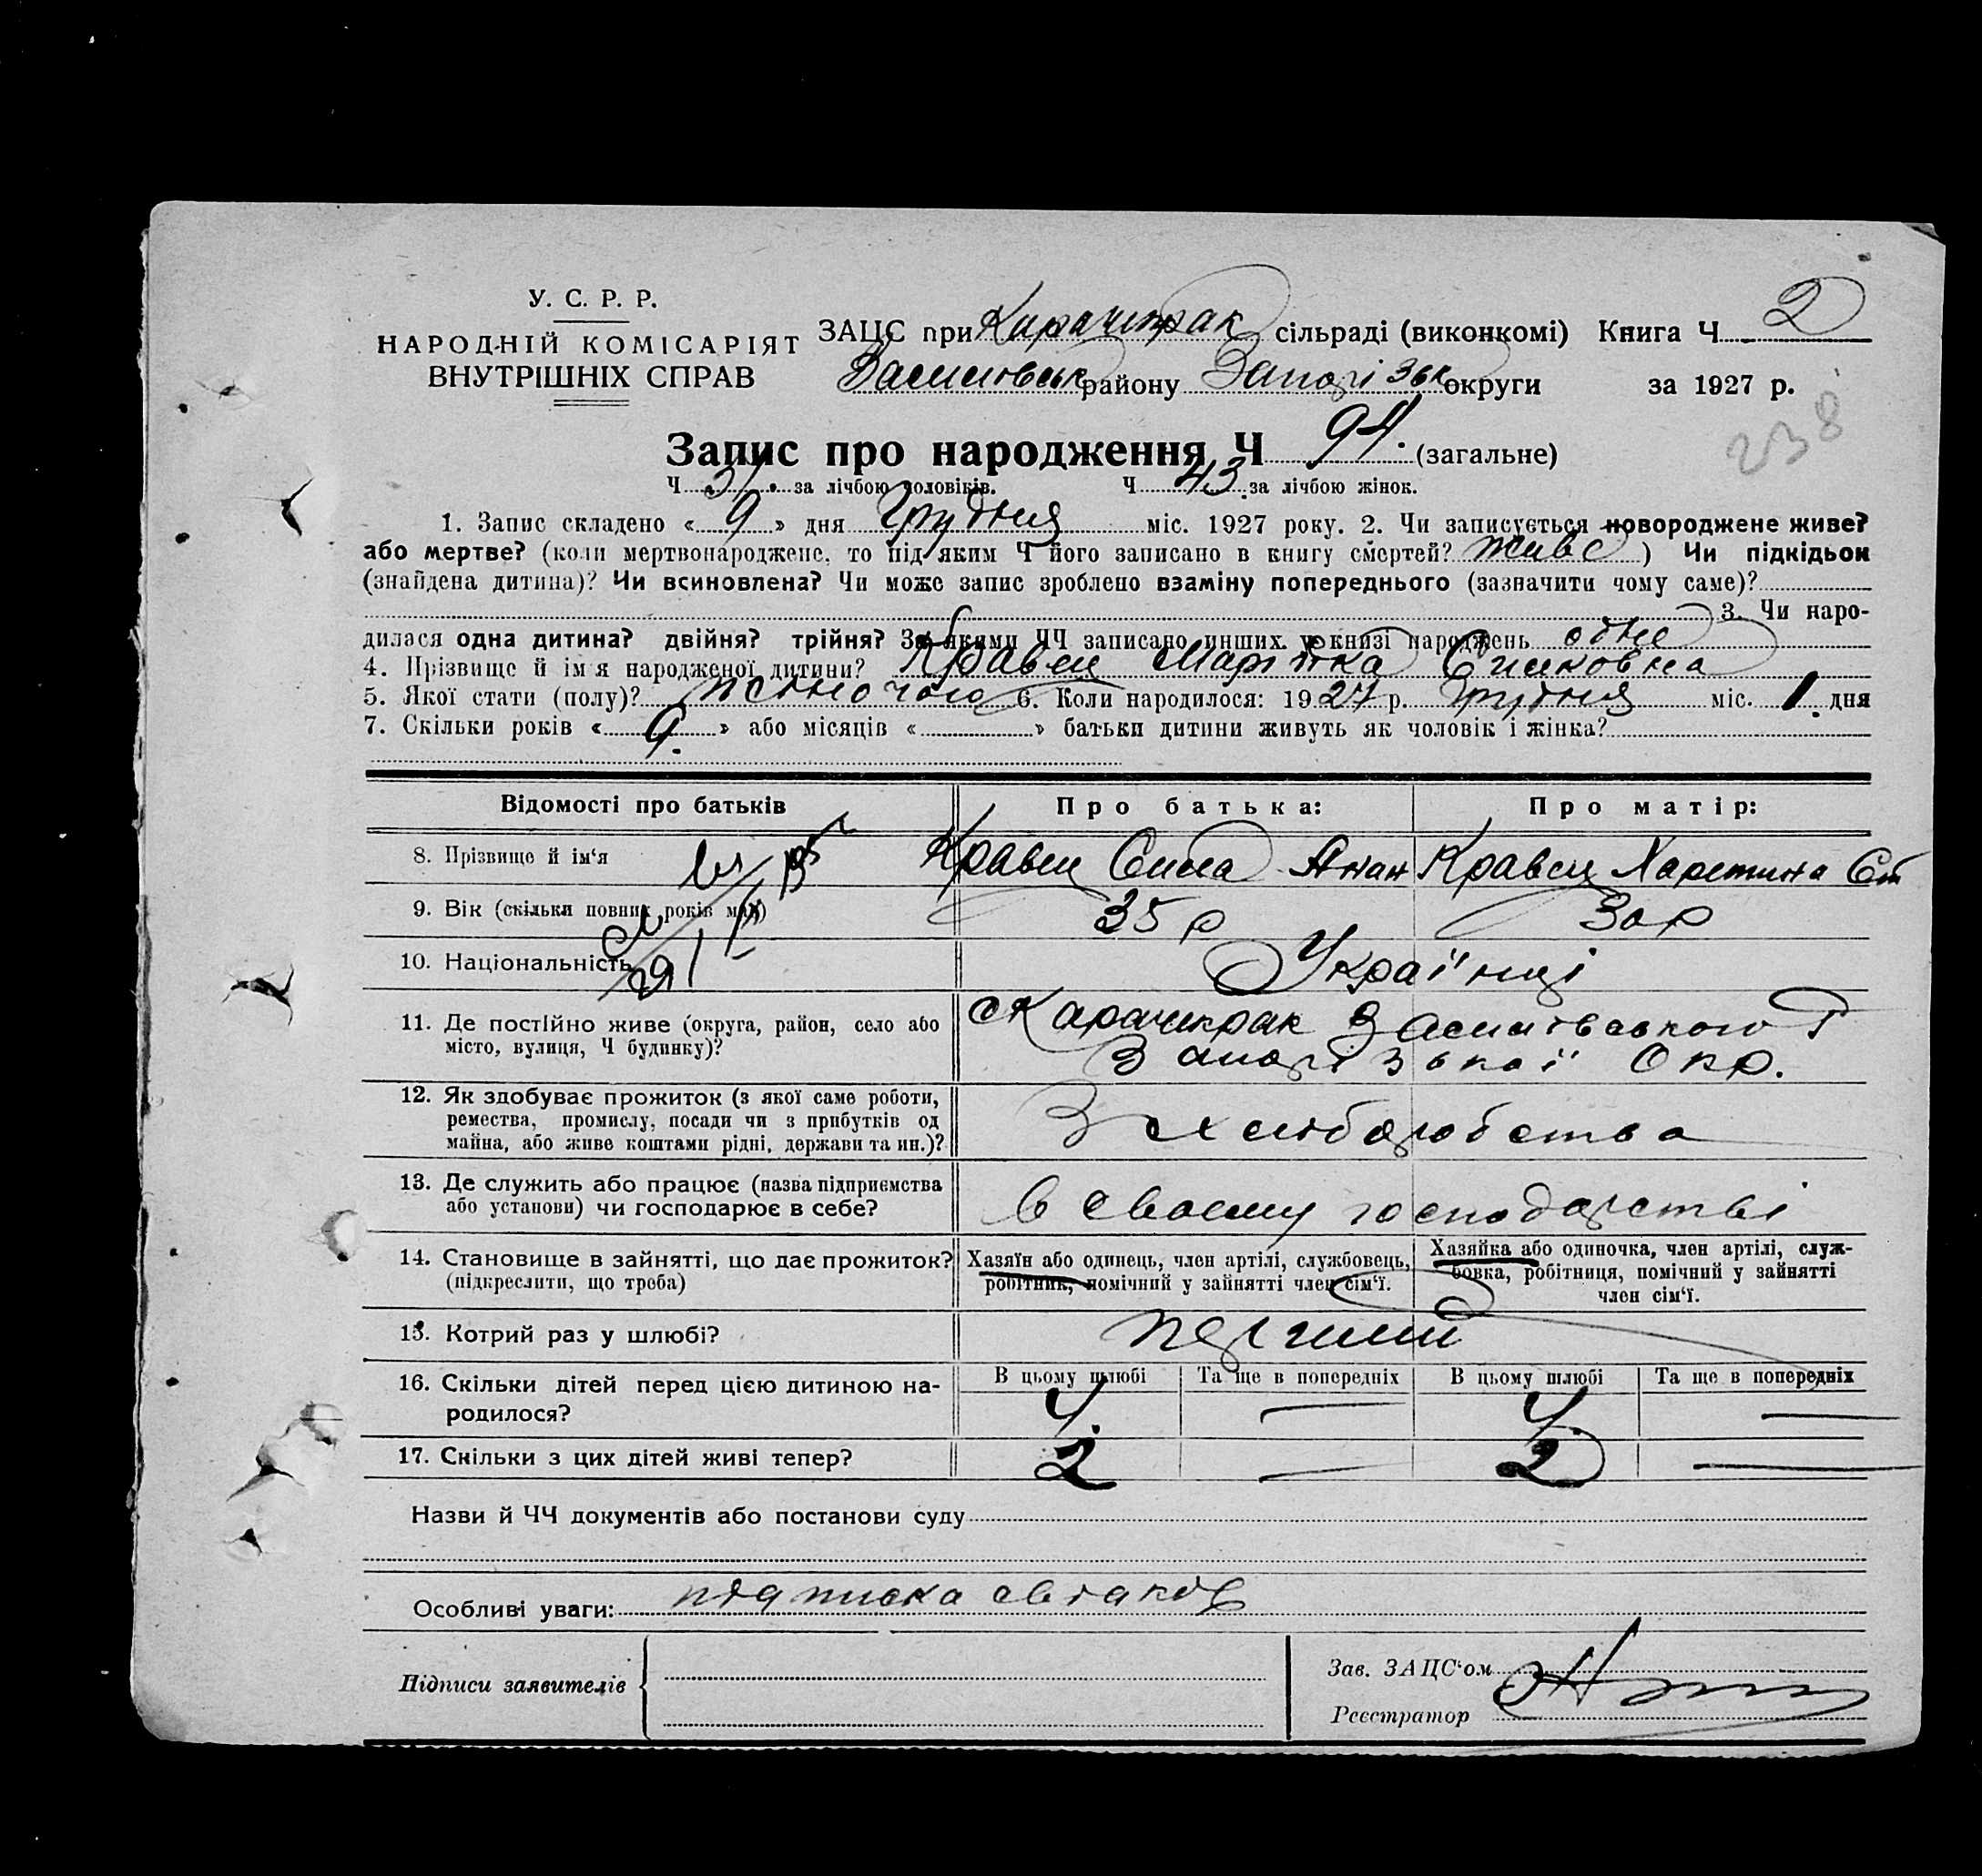 У. С. Р. Р.
НАРОДНІЙ КОМІСАРІЯТ
ВНУТРІШНІХ СПРАВ
ЗАЦС при Карачекрак сільраді (виконкомі) Книга Ч 2
Василівськ району Запорізьк округи за 1927 р.
238
Запис про народження Ч 94. (загальне)
Ч 51. за лічбою чоловіків. Ч 43. за лічбою жінок.
1. Запис складено « 9 » дня Грудня міс. 1927 року. 2. Чи записується новороджене живе?
або мертве? (коли мертвонароджене, то під яким Ч його записано в книгу смертей? живе ) Чи підкідьок
(знайдена дитина)? Чи всиновлена? Чи може запис зроблено взаміну попереднього (зазначити чому саме)?
3. Чи наро-
дилася одна дитина? двійня? трійня? За якими ЧЧ записано инших у книзі народжень одне
4. Прізвище й ім'я народженої дитини? Кравец Марійка Силковна
5. Якої стати (полу)? жіночого 6. Коли народилося: 1927 р. Грудня міс. 1. дня
7. Скільки років « 9. » або місяців « » батьки дитини живуть як чоловік і жінка?
Відомості про батьків Про батька: Про матір:
8. Прізвище й ім'я Кравец Сила Анан Кравец Харетина Ст
9. Вік (скільки повних років має) 35 р 30 р
10. Національність Українці
11. Де постійно живе (округа, район, село або
місто, вулиця, Ч будинку)?
с Карачекрак Василівського Р
Запорізької Окр.
12. Як здобуває прожиток (з якої саме роботи,
ремества, промислу, посади чи з прибутків од
майна, або живе коштами рідні, держави та ин.)?
З хліборобства
13. Де служить або працює (назва підприємства
або установи) чи господарює в себе?
в своєму господарстві
14. Становище в зайнятті, що дає прожиток?
(підкреслити, що треба)
Хазяїн або одинець, член артілі, службовець,
робітник, помічний у зайнятті член сім'ї.
Хазяйка або одиночка, член артілі, служ-
бовка, робітниця, помічний у зайнятті
член сім'ї.
15. Котрий раз у шлюбі? перший
16. Скільки дітей перед цією дитиною на-
родилося?
В цьому шлюбі Та ще в попередніх В цьому шлюбі Та ще в попередніх
4. — 4 —
17. Скільки з цих дітей живі тепер? 2 — 2 —
Назви й ЧЧ документів або постанови суду
Особливі уваги: підписка свідків
Підписи заявителів
Зав. ЗАЦС'ом
Реєстратор